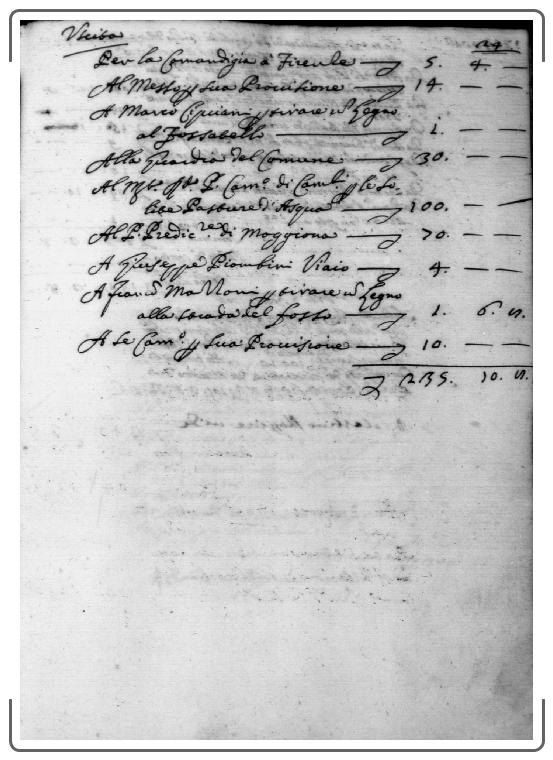 Uscita 24
Per la Comandigia à Firenze 5. 4. —
Al Messo p sua Provisione 14. — —
A Marco Cipriani p tirare un Legno
al Fossatello 1. — —
Alla Guardia del Comune 30. — —
Al di Camo
Pasture d'Asqua 100. — —
Al P. Predicre di Moggiona 70. — —
A Giuseppe Piombini Viaio 4. — —
A Franco Ma Noni p tirare un Legno
alla strada del fosso 1. 6. 8.
A Se Camo p sua Provisione 10. — —
235. 10. 8.